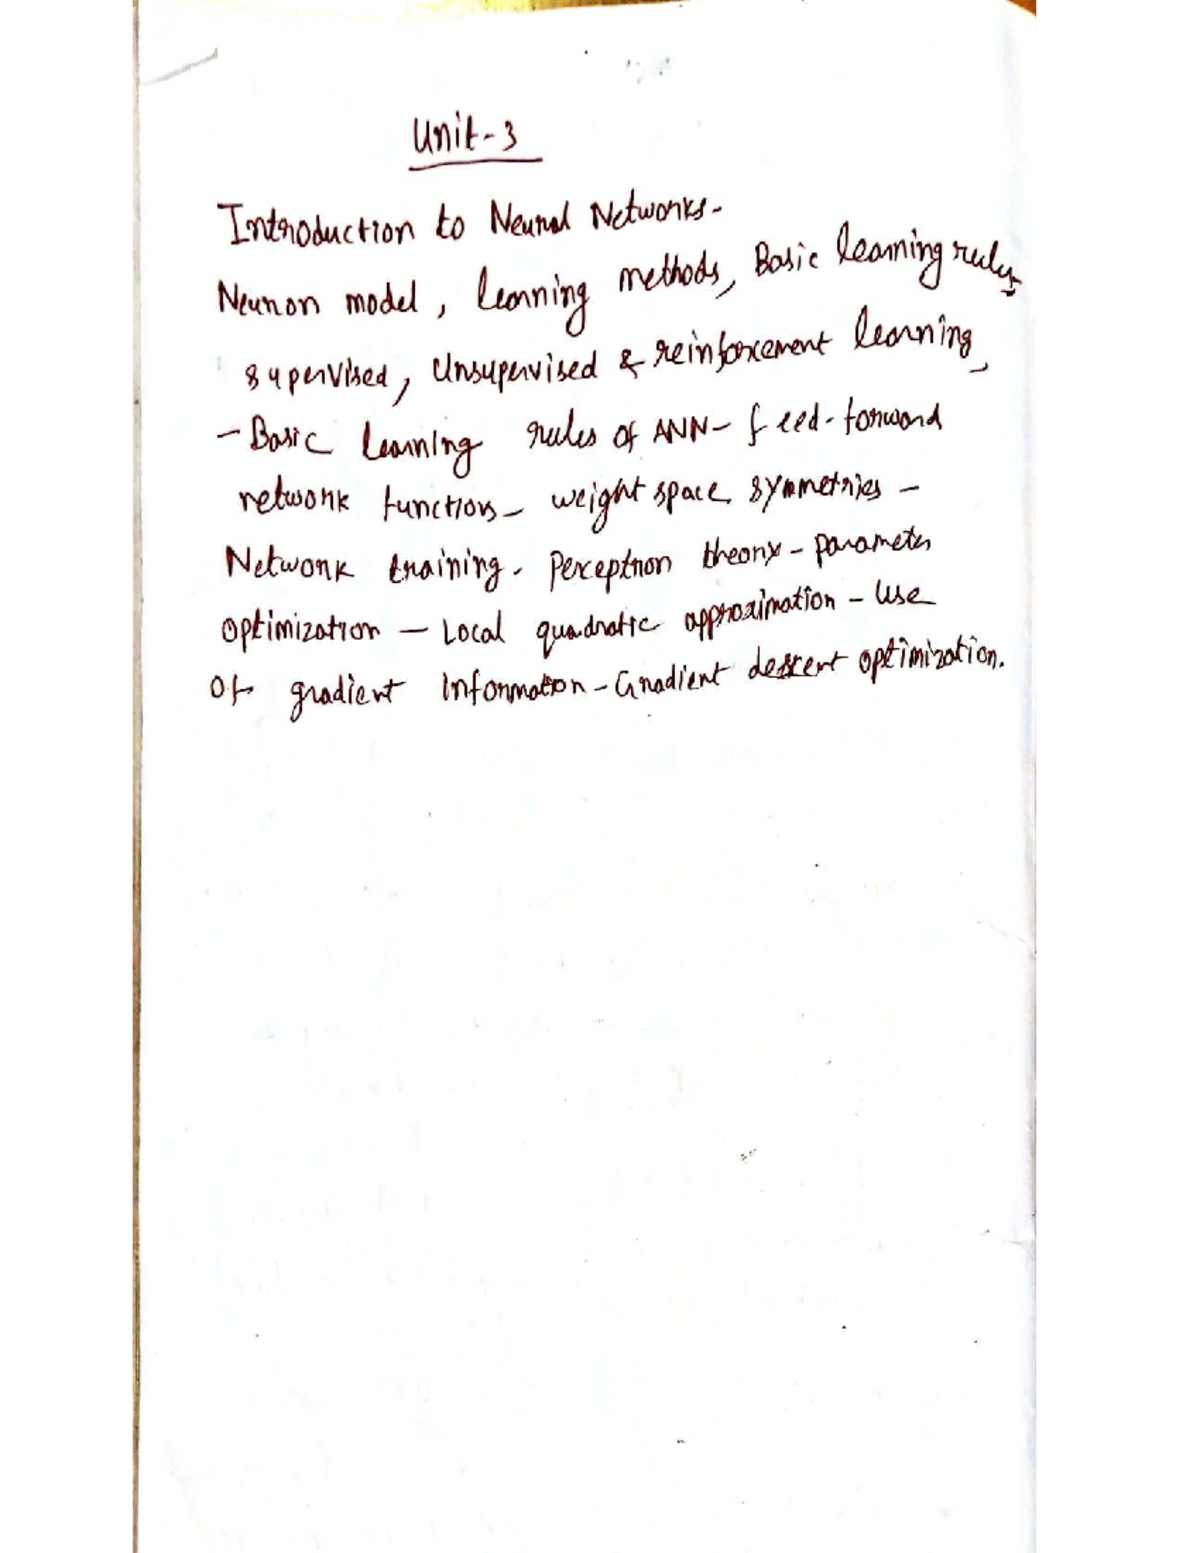 Unit-3
Introduction to Neural Networks-
Neuron model, learning methods, Basic learning rules,
supervised, Unsupervised & reinforcement learning,
- Basic learning rules of ANN- feed-forward
network functions- weight space symmetries -
Network training. Perceptron theory - parameter
optimization - Local quadratic approximation - Use
of gradient information - Gradient descent optimization.